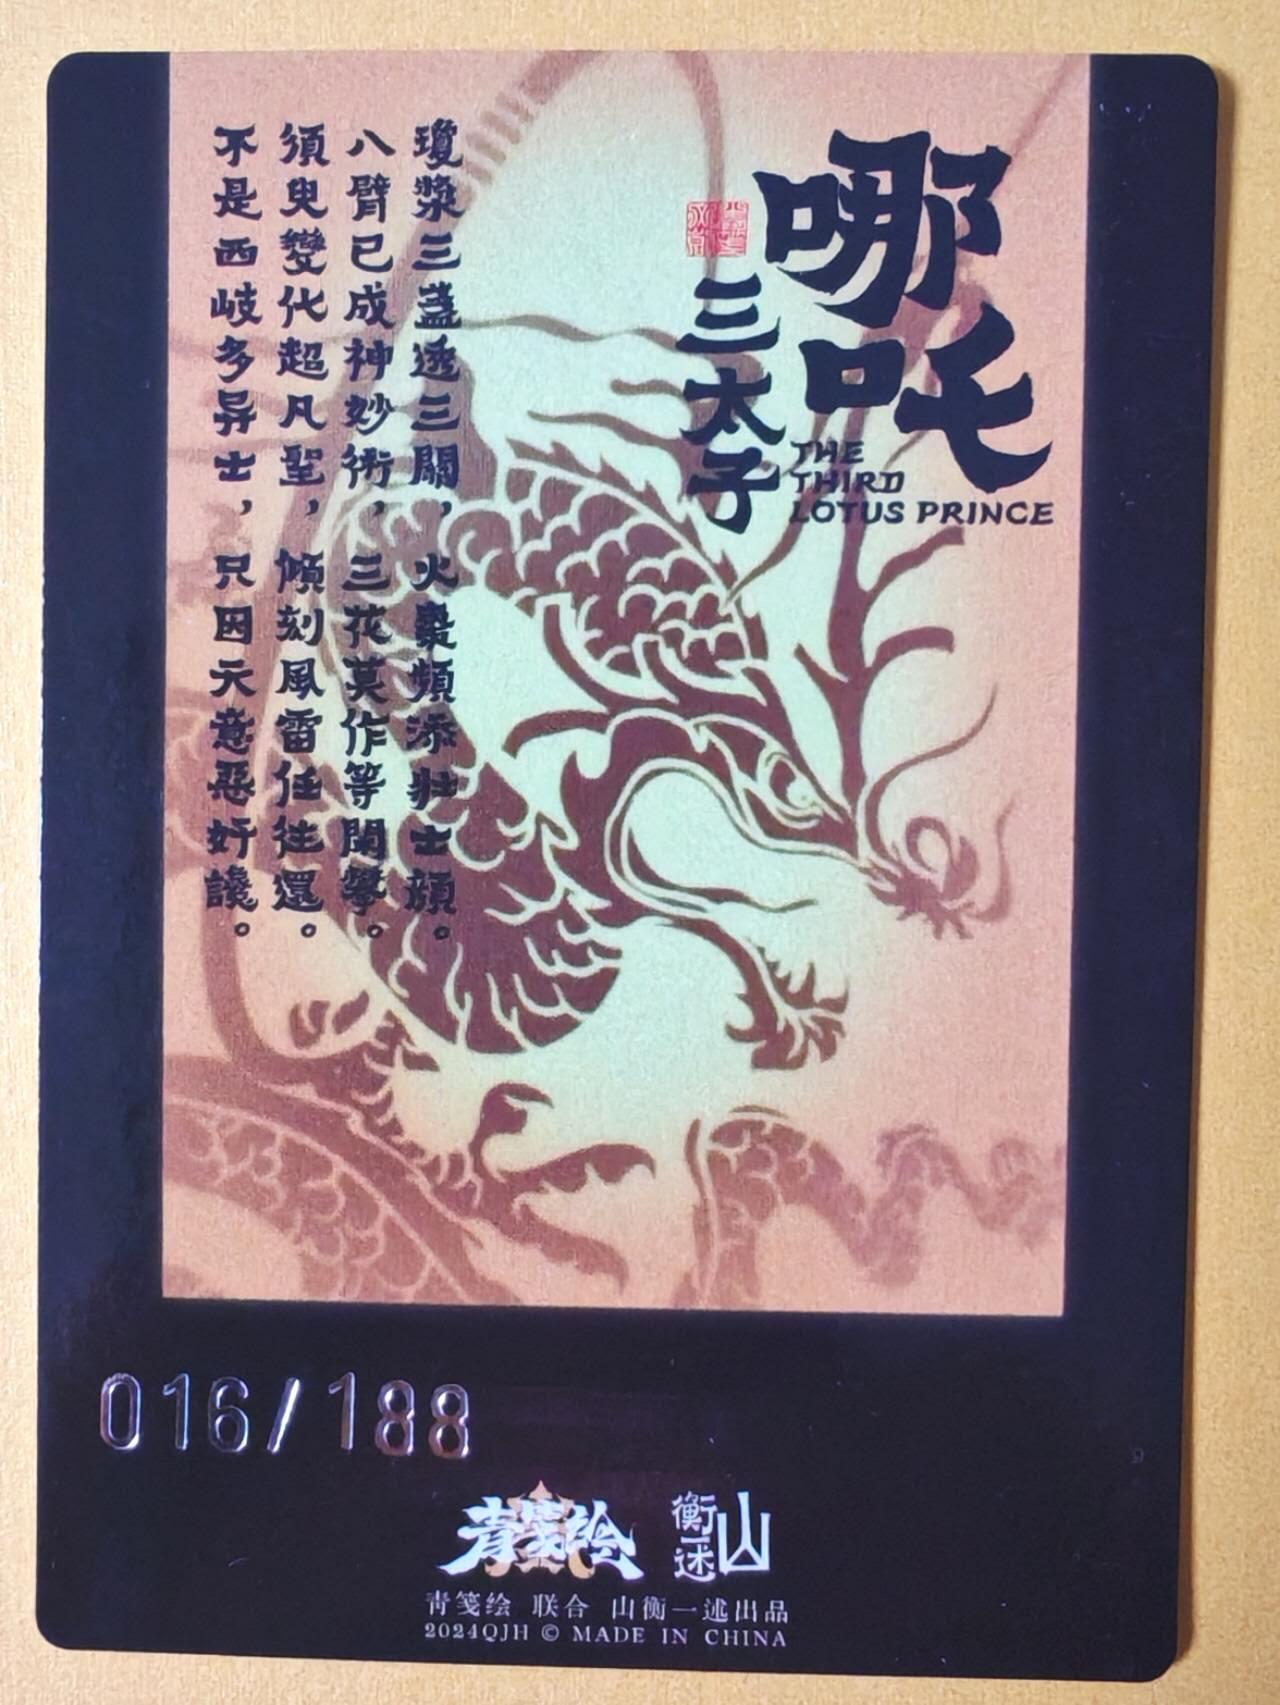 哪吒
三太子
THE
THIRD
LOTUS PRINCE
瓊漿三盞透三關，火棗頻添壯士顔。
八臂已成神妙術，三花莫作等閑攀。
須臾變化超凡聖，傾刻風雷任往還。
不是西岐多异士，只因天意惡奸讒。
016/188
青笺绘
山衡一述
青笺绘 联合 山衡一述出品
2024QJH © MADE IN CHINA